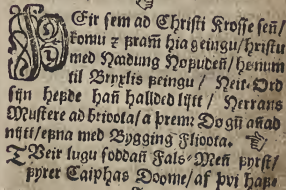 ÞEir sem ad Christi Krosse señ/
komu z þram̃ hia geingu/ hristu
med Nædung Hopuden/ honum
til Bryxlis þeingu / Neit-Ord
sijn hefde hañ hallded lijtt / Herrans
Mustere ad brioota/ a premr Dogũ añad
nijtt/ efna med Bygging Flioota.
TVeir lugu soddañ Fals-Meñ þyrst/
þyrer Caiphas Doome/ af þvi haf-